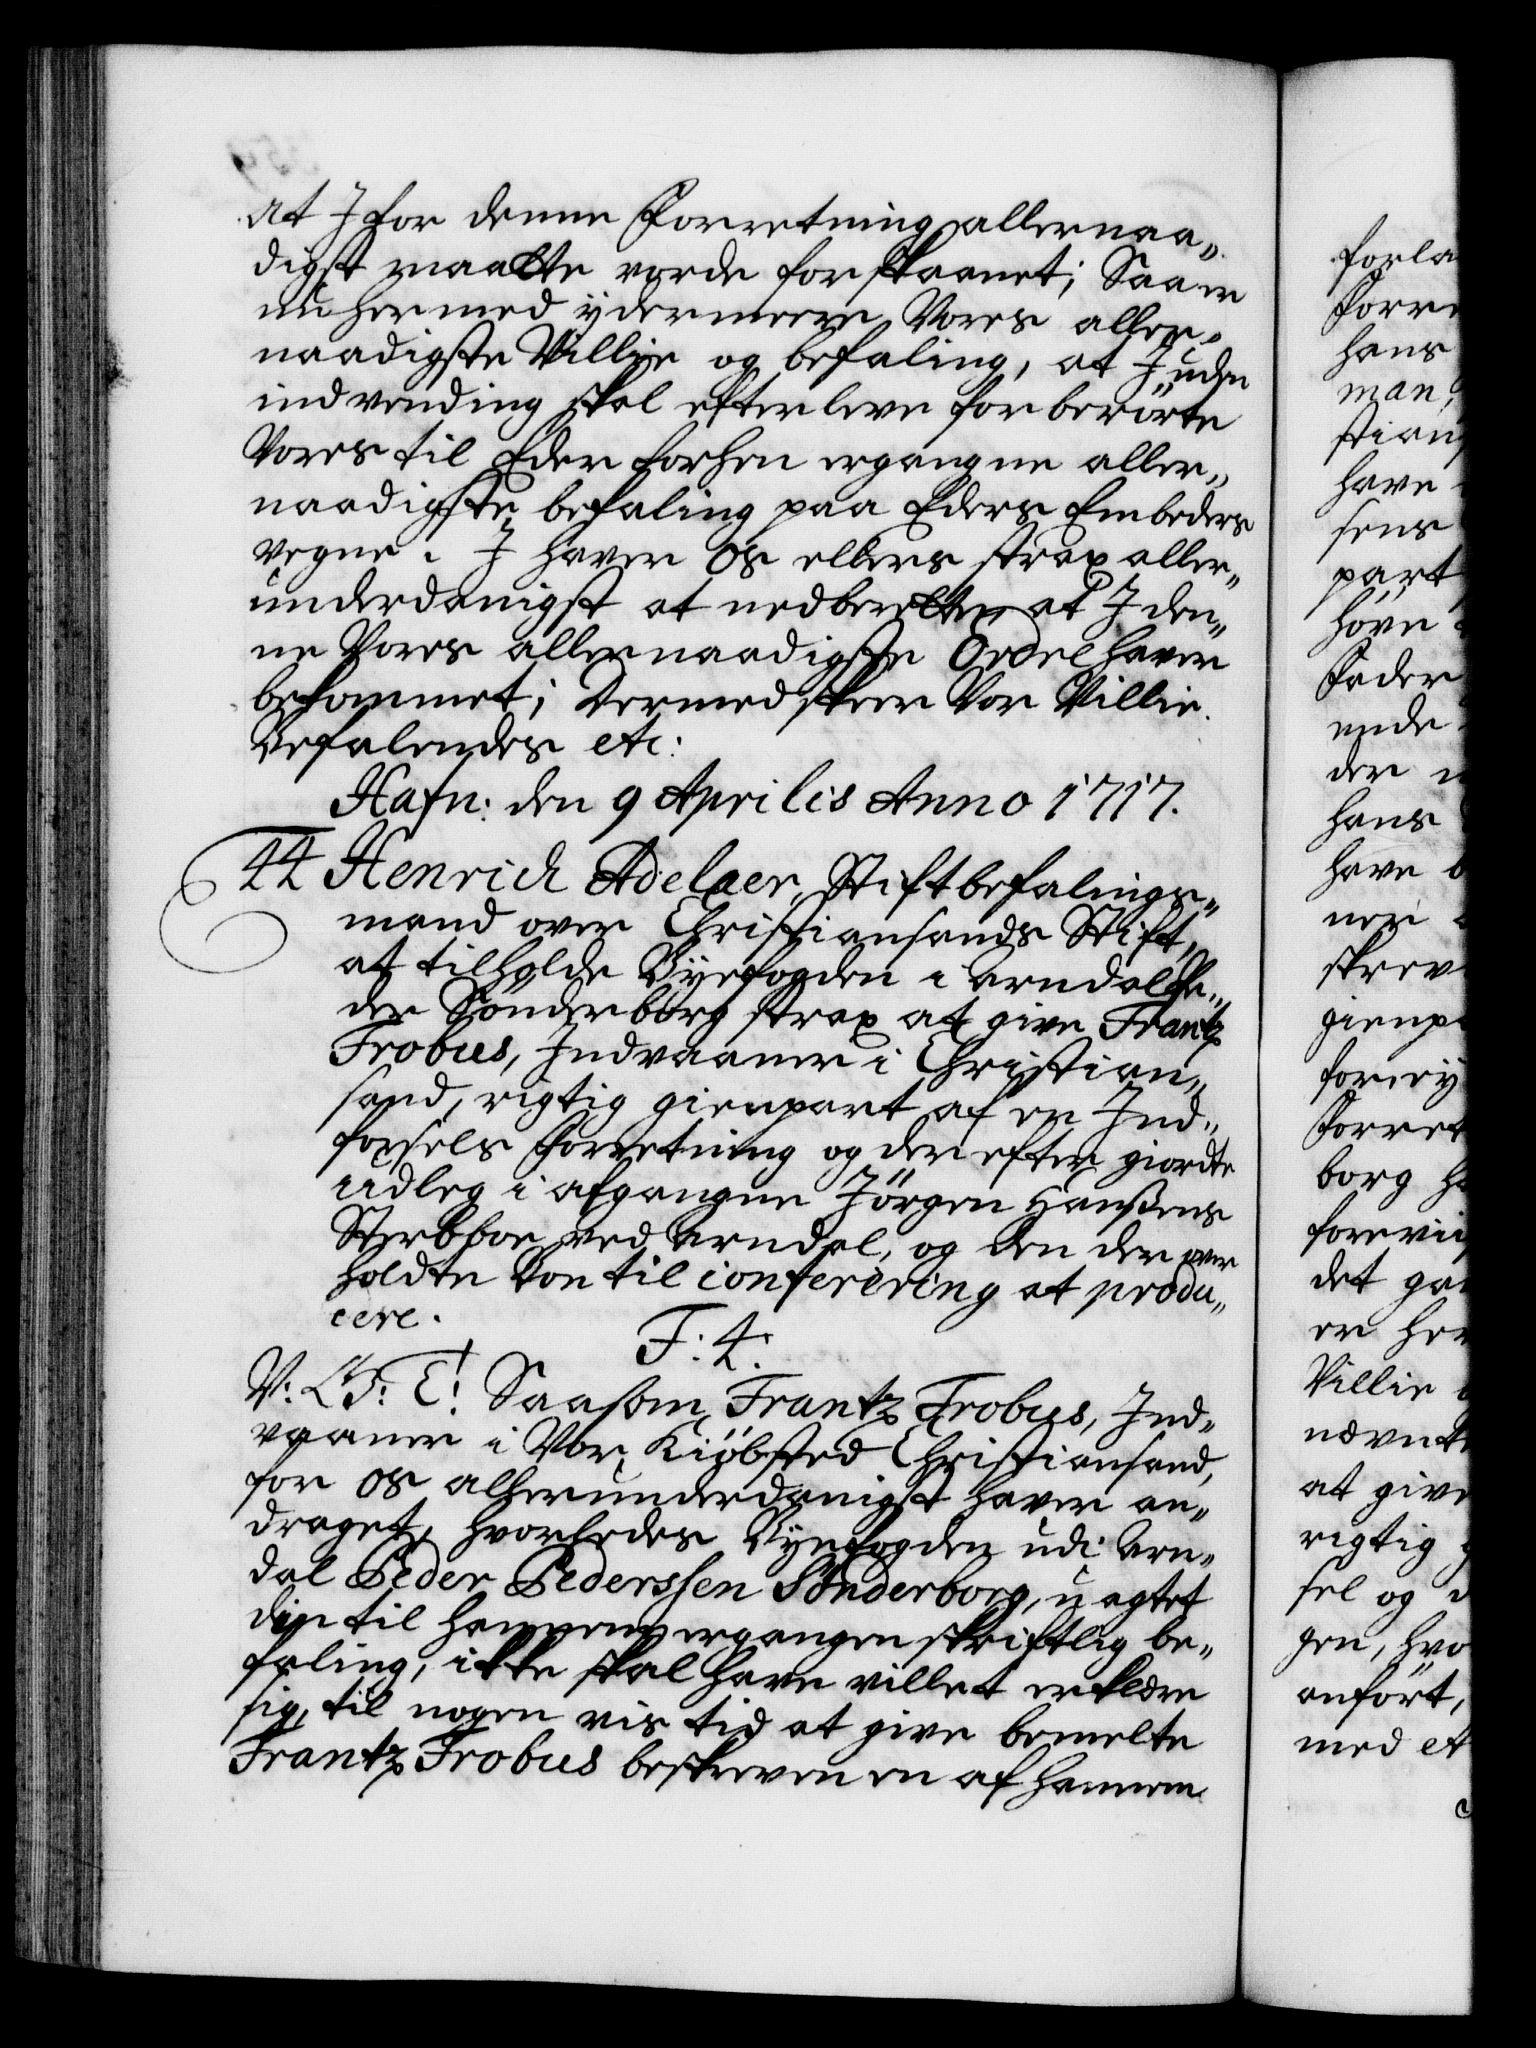 at I for denne Forretning allernaa„
digst maatte vorde forskaanet; Saa er
nu hermed ydermeere Vores aller„
naadigste Villie og befaling, at I uden
indvending skal efterleve forberörte
Vores til Eder forhen ergangne aller„
naadigste befaling paa Eders Embeders
vegne. I haver Os ellers strax aller„
underdanigst at nedberette, at I den„
ne Vores allernaadigste Ordre haver
bekommet; Dermed skeer Vor Villie.
Befalendes etc:
Hafn: den 9 Aprilis Anno 1717.
44 Henrich Adelaer, Stiftbefalings„
mand over Christiansands Stift,
at tilholde Byefogden i Arndal Pe„
der Sönderborg strax at give Frantz
Frobus, Indvaaner i Christian„
sand, rigtig gienpart af en Ind„
försels Forretning og der efter giordte
Udleg i afgangne Jörgen Hanssens
Sterbboe ved Arndal, og den der over
holdte Dom til conferering at produ„
cere.
F: 4:
V: G: T! Saasom Frantz Frobus, Ind„
vaaner i Vor Kiöbsted Christiansand,
for Os allerunderdanigst haver an„
draget, hvorledes Byefogden udi Arn„
dal Peder Pederssen Sönderborg, uagtet
din til hannem ergangen skriftlig be„
faling, ikke skal have villet erklære
sig, til nogen vis tid at give bemelte
Frantz Frobus beskreven en af hannem
forla
Forre
hans
man,
stians
have
sens
part
höre
Peder
ende
der
hans
have
ner
skrev
gienpa
forny
Forret
borg ha
foreviis
det gan
er her
Villie
nævnte
at give
rigtig
sel og
gen, hvo
anfört,
med et